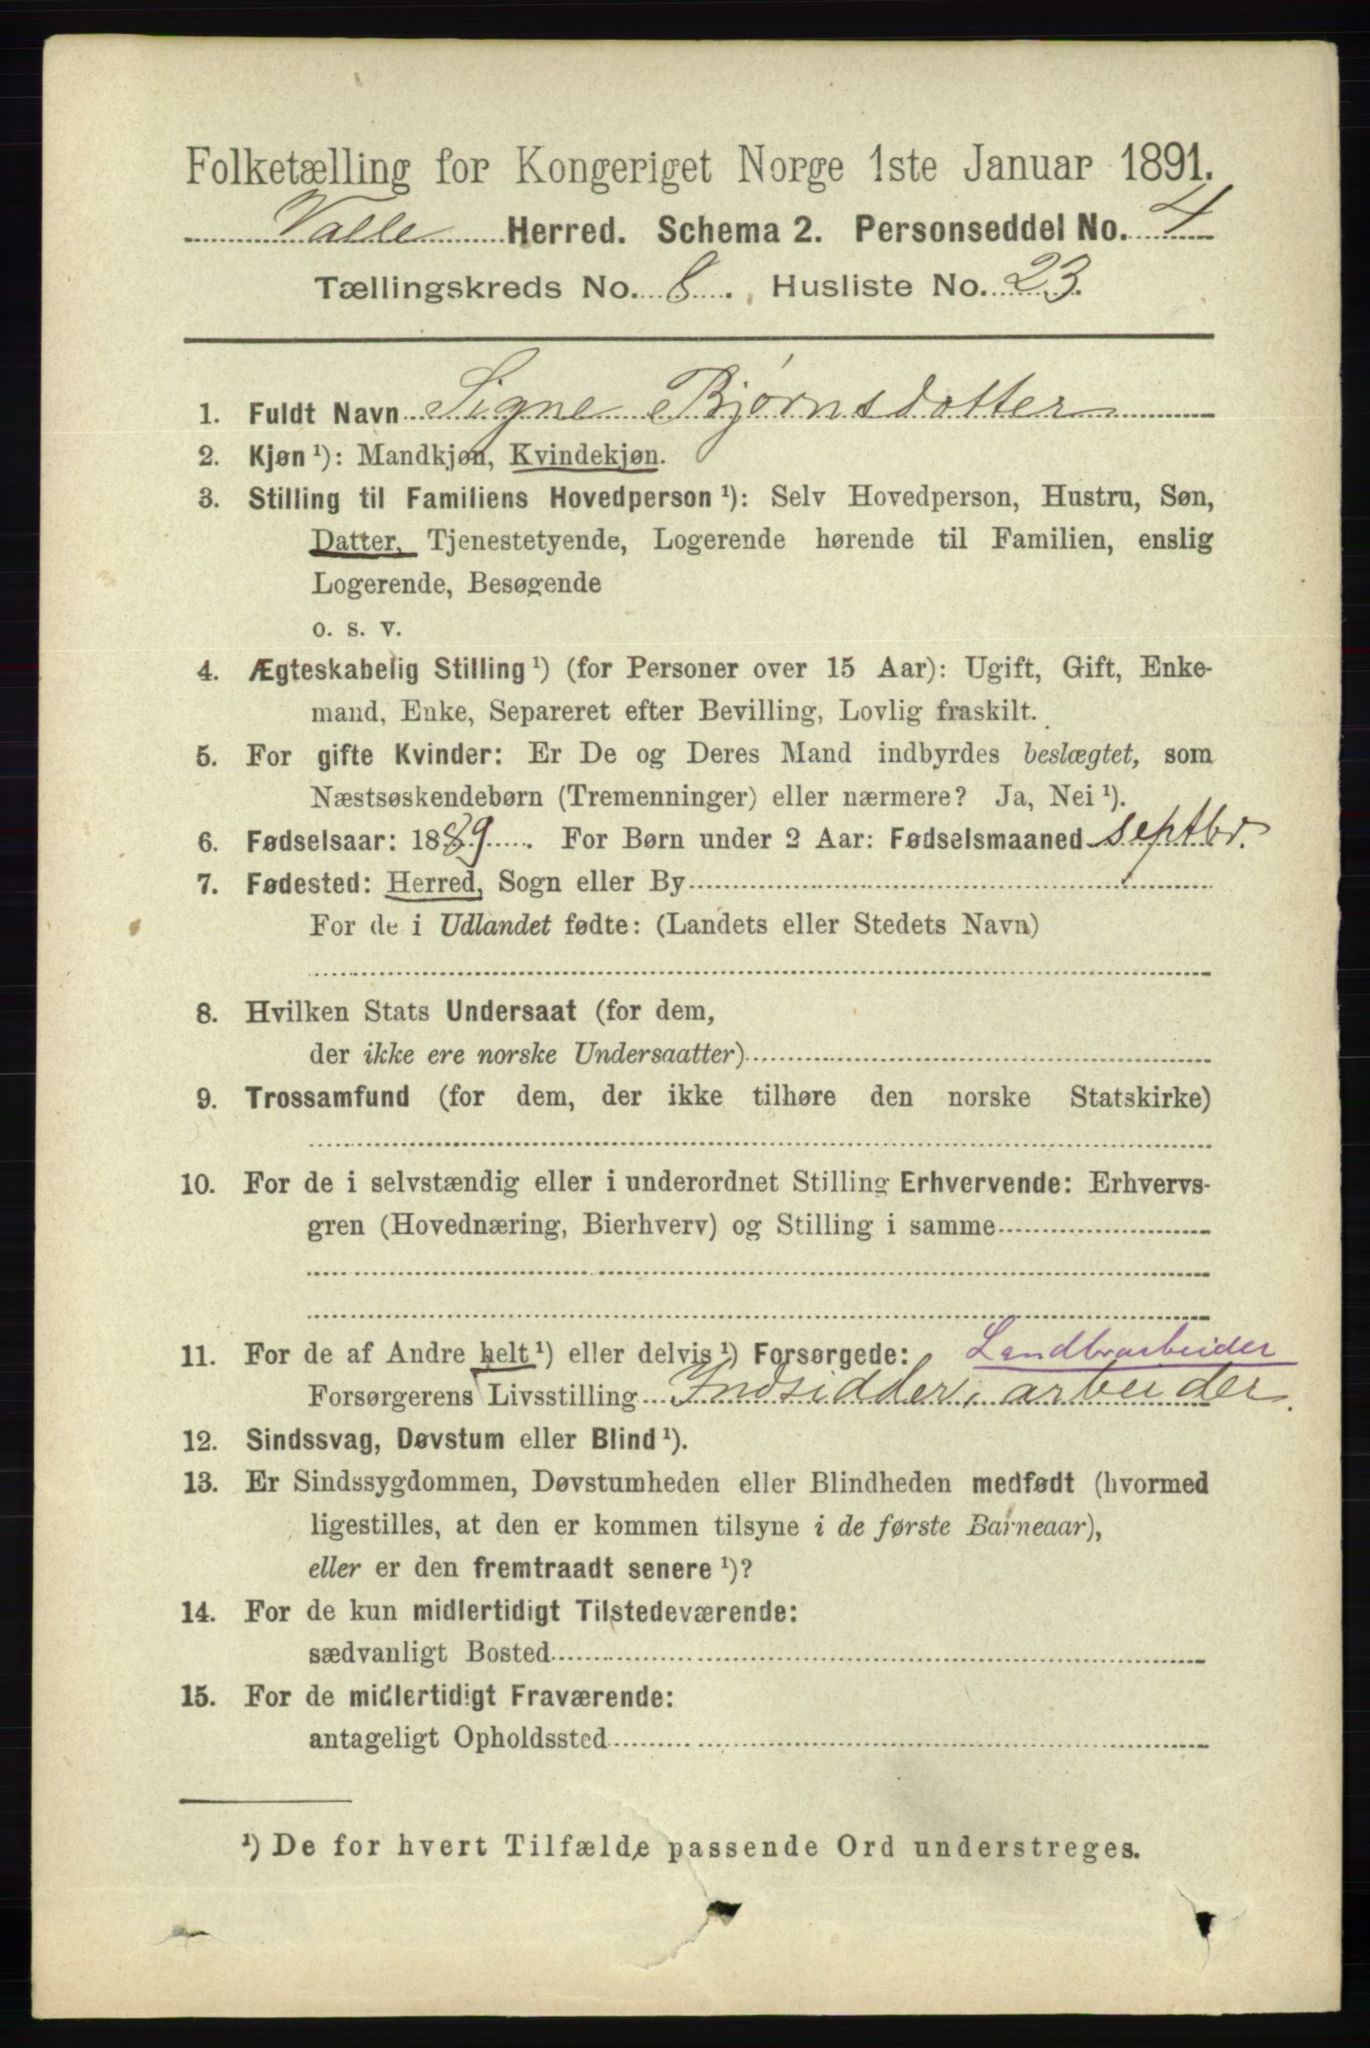 Folketælling for Kongeriget Norge 1ste Januar 1891.
Valle Herred. Schema 2. Personseddel No. 4
Tællingskreds No. 8. Husliste No. 23.
1. Fuldt Navn Signe Bjørnsdotter
2. Kjøn ¹): Mandkjøn, Kvindekjøn.
3. Stilling til Familiens Hovedperson ¹): Selv Hovedperson, Hustru, Søn,
Datter, Tjenestetyende, Logerende hørende til Familien, enslig
Logerende, Besøgende
o. s. v.
4. Ægteskabelig Stilling ¹) (for Personer over 15 Aar): Ugift, Gift, Enke-
mand, Enke, Separeret efter Bevilling, Lovlig fraskilt.
5. For gifte Kvinder: Er De og Deres Mand indbyrdes beslægtet, som
Næstsøskendebørn (Tremenninger) eller nærmere? Ja, Nei ¹).
6. Fødselsaar: 1889. For Børn under 2 Aar: Fødselsmaaned septbr.
7. Fødested: Herred, Sogn eller By
For de i Udlandet fødte: (Landets eller Stedets Navn)
8. Hvilken Stats Undersaat (for dem,
der ikke ere norske Undersaatter)
9. Trossamfund (for dem, der ikke tilhøre den norske Statskirke)
10. For de i selvstændig eller i underordnet Stilling Erhvervende: Erhvervs-
gren (Hovednæring, Bierhverv) og Stilling i samme
11. For de af Andre helt ¹) eller delvis ¹) Forsørgede: Landbrarbeider
Forsørgerens Livsstilling Indsidder, arbeider.
12. Sindssvag, Døvstum eller Blind ¹).
13. Er Sindssygdommen, Døvstumheden eller Blindheden medfødt (hvormed
ligestilles, at den er kommen tilsyne i de første Barneaar),
eller er den fremtraadt senere ¹)?
14. For de kun midlertidigt Tilstedeværende:
sædvanligt Bosted
15. For de midlertidigt Fraværende:
antageligt Opholdssted
¹) De for hvert Tilfælde passende Ord understreges.